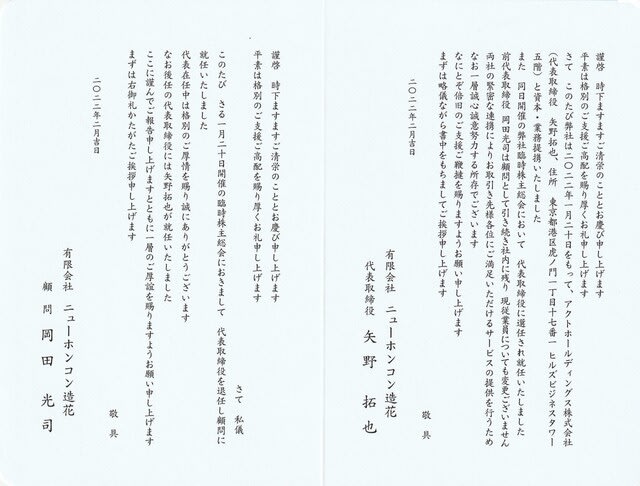 謹啓　時下ますますご清栄のこととお慶び申し上げます
平素は格別のご支援ご高配を賜り厚くお礼申し上げます
さて　このたび弊社は二〇二二年一月二十日をもって、アクトホールディングス株式会社
(代表取締役　矢野拓也、住所　東京都港区虎ノ門一丁目十七番一　ヒルズビジネスタワー
五階)と資本・業務提携いたしました
また　同日開催の弊社臨時株主総会において　代表取締役に選任され就任いたしました
前代表取締役　岡田光司は顧問として引き続き社内に残り　現従業員についても変更ございません
両社の緊密な連携によりお取引き先様各位にご満足いただけるサービスの提供を行うため
なお一層誠心誠意努力する所存でございます
なにとぞ倍旧のご支援ご鞭撻を賜りますようお願い申し上げます
まずは略儀ながら書中をもちましてご挨拶申し上げます
敬具
二〇二二年二月吉日
有限会社　ニューホンコン造花
代表取締役　矢野拓也
謹啓　時下ますますご清栄のこととお慶び申し上げます
平素は格別のご支援ご高配を賜り厚くお礼申し上げます
さて　私儀
このたび　さる一月二十日開催の臨時株主総会におきまして　代表取締役を退任し顧問に
就任いたしました
代表在任中は格別のご厚情を賜り誠にありがとうございます
なお後任の代表取締役には矢野拓也が就任いたしました
ここに謹んでご報告申し上げますとともに一層のご厚誼を賜りますようお願い申し上げます
まずは右御礼かたがたご挨拶申し上げます
敬具
二〇二二年二月吉日
有限会社　ニューホンコン造花
顧問　岡田光司